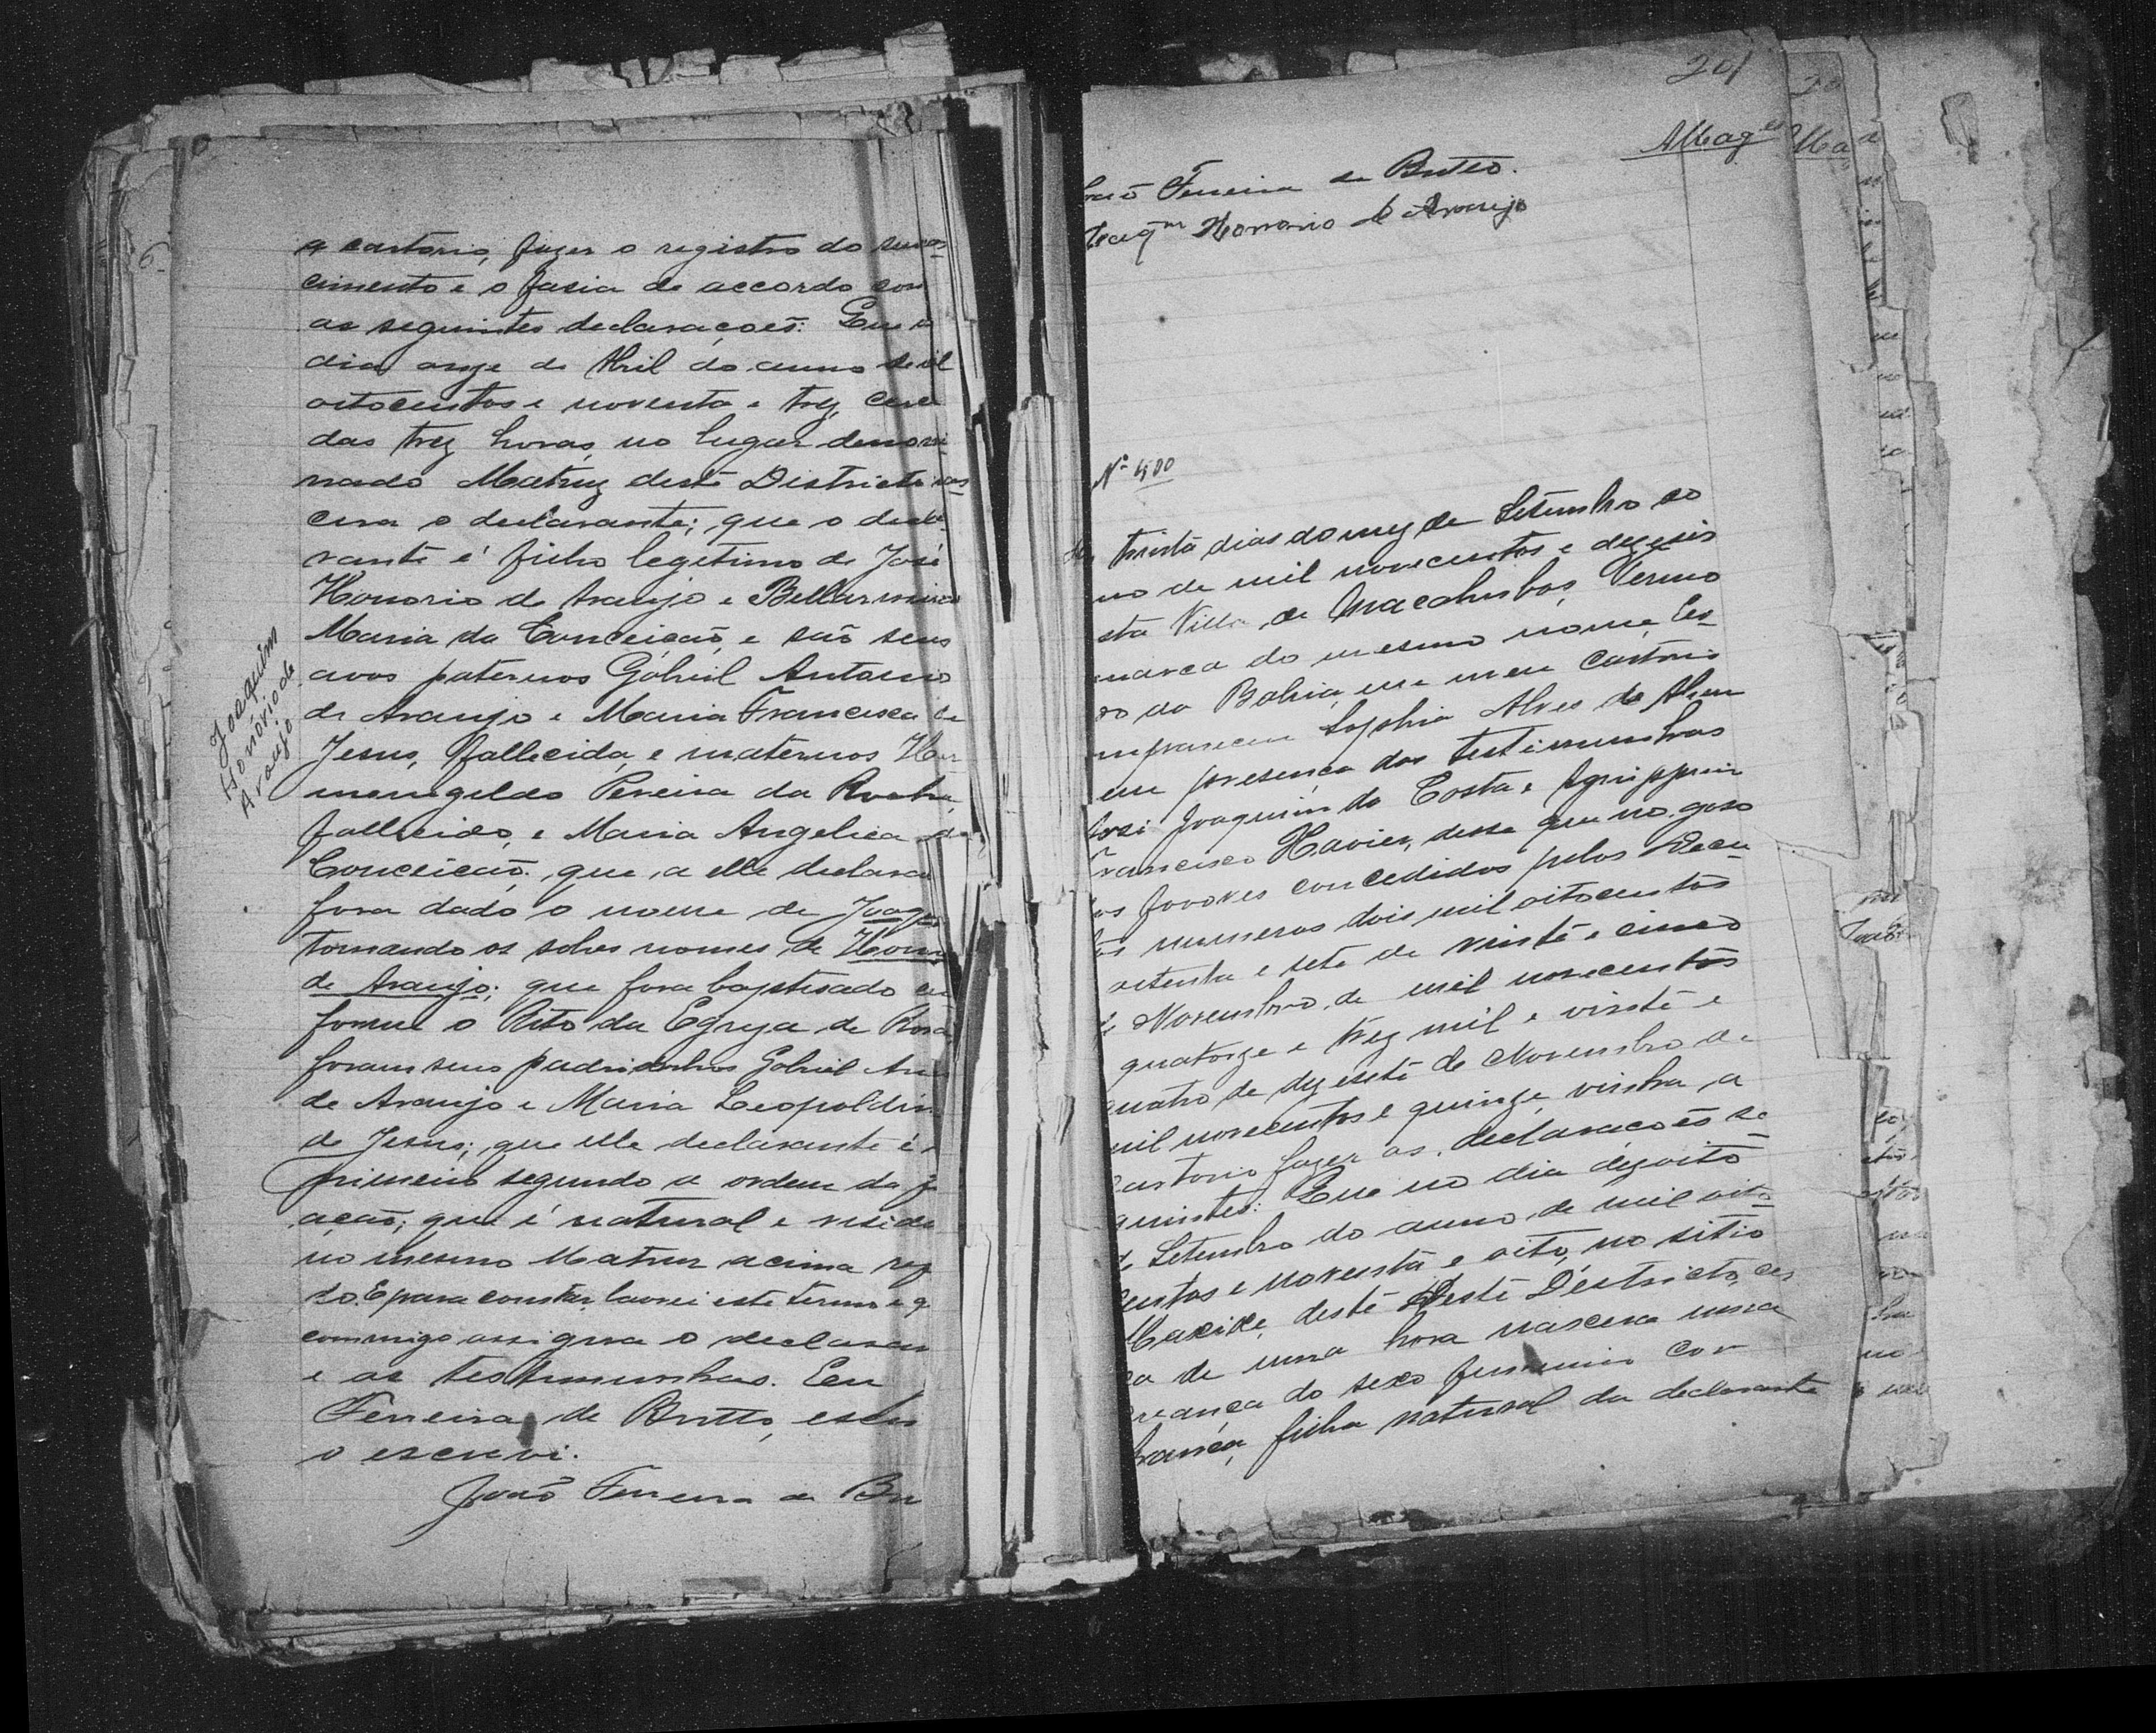 a cartorio, fazer o registro do seu nas=
cimento e o fasia de accordo com
as seguintes declarações: Que o
dia onze de Abril do anno de mil
oitocentos e noventa e trez, cerca
das trez horas, no lugar denomi
nado Matruz deste Districto nas=
cera o declarante; que o decla
rante é filho legitimo de José
Honorio de Araujo e Bellarmina
Maria da Conceicão, e são seus
avos paternos Gabriel Antonio
de Araujo e Maria Francisca de
Jesus, fallecida, e maternos Her
menegildo Pereira da Rocha,
fallecido, e Maria Angelica da
Conceicão, que a elle declara
fora dado o nome de Joaq
tomando os sobre nomes de Honor
de Araujo; que fora baptisado con
forme o Rito da Egreja de Roma
foram seus padrinhos Gabriel An
de Araujo e Maria Leopoldin
de Jesus; que elle declarante é o
primeiro segundo a ordem da f
ação; que é natural e reside
no mesmo Matruz acima ref
do. E para constar lavrei este termo e q
commigo assigna o declaran
e as testimunhas. Eu
Ferreira de Britto, escr
o escrevi.
João Ferreira de Br
Joaquim
Honório de
Araujo
201
AMag es
João Ferreira de Britto.
Joaq m Honorio de Araujo
Nº 400
trinta dias do mez de Setembro do
no de mil novecentos e dezeseis
sta Villa de Macahubas, Termo
marca do mesmo nome, Es=
do da Bahia, em meu cartorio
mpareceu Sophia Alves de Alm
em presença das testimunhas
José Joaquim da Costa e Agrippim
Francisco Xavier, disse que no goso
os favores concedidos pelos Decre
tos numeros dois mil oitocentos
oitenta e sete de vinte e cinco
de Novembro de mil novecentos
quatorze e trez mil e vinte e
quatro de dezesete de Novembro de
mil novecentos e quinze, vinha a
cartorio fazer as declaracões se
guintes: Que no dia dezoito
de Setembro do anno de mil oito=
centos e noventa e oito, no sitio
Maxixe, deste Deste Districto, cer
ca de uma hora nascera uma
creança do sexo feminino cor
branca, filha natural da declarante